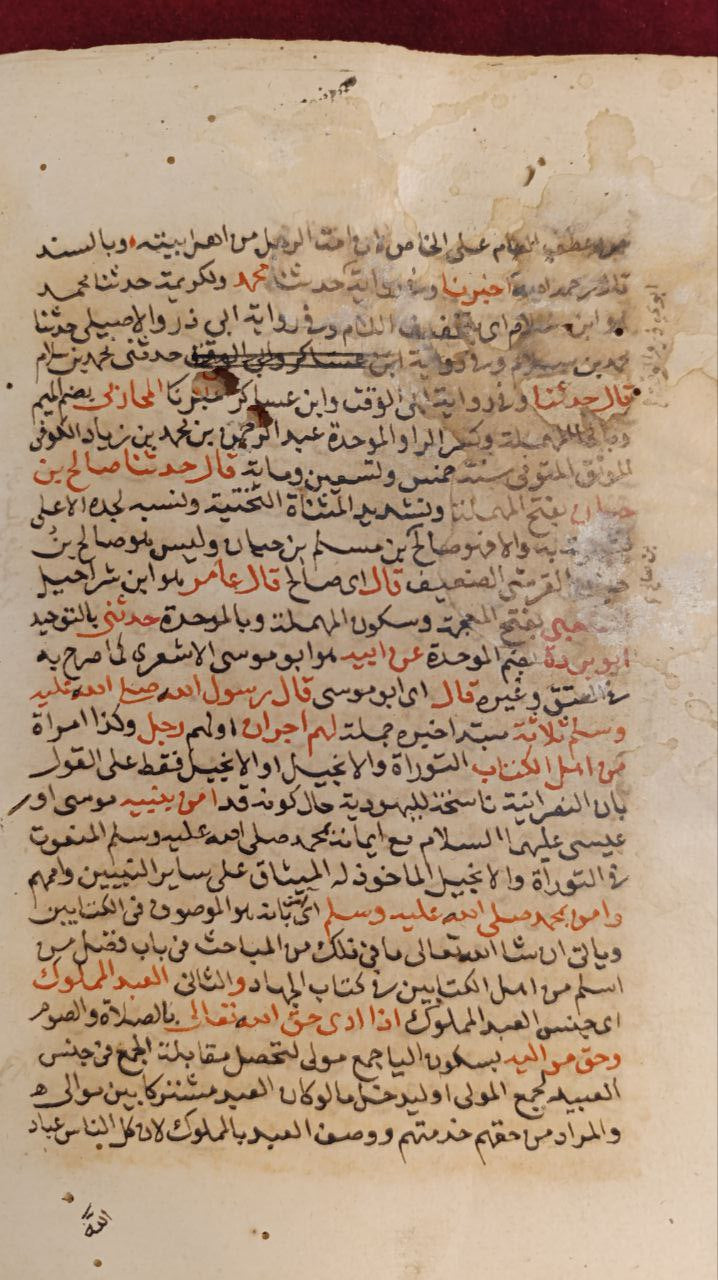 من عطف العام على الخاص لان امة الرجل من اهل بيته وبالسند
قال رحمه الله اخبرنا وفى رواية حدثنا محمد ولكريمة حدثنا محمد
هو ابن سلام اى بتخفيف اللام وفى رواية ابى ذر والاصيلى حدثنا
محمد بن سلام وفى رواية ابن عساكر وابى الوقت حدثنى محمد بن سلام
قال حدثنا وفى رواية ابى الوقت وابن عساكر اخبرنا المحاربى بضم الميم
وبالحا المهملة وكسر الرا والموحدة عبد الرحمن بن محمد بن زياد الكوفى
الموثق المتوفى سنة خمس وتسعين وماية قال حدثنا صالح بن
حيان بفتح المهملة وتشديد المثناة التحتية ونسبه لجده الاعلى
والا فهو صالح بن مسلم بن حيان وليس هو صالح بن
حيان القرشى الضعيف قال اى صالح قال عامر هو ابن شراحيل
الشعبى بفتح المعجمة وسكون المهملة وبالموحدة حدثنى بالتوحيد
ابو بردة بضم الموحدة عن ابيه هو ابو موسى الاشعرى كما صرح به
فى العتق وغيره قال اى ابو موسى قال رسول الله صلى الله عليه
وسلم ثلاثة مبتدا خبره جملة لهم اجران اولهم رجل وكذا امراة
من اهل الكتاب التوراة والانجيل او الانجيل فقط على القول
بان النصرانية ناسخة لليهودية حال كونه قد امن بنبيه موسى او
عيسى عليهما السلام مع ايمانه بمحمد صلى الله عليه وسلم المنعوت
فى التوراة والانجيل الماخوذ له الميثاق على ساير النبيين واممهم
وامن بمحمد صلى الله عليه وسلم اى بانه هو الموصوف فى الكتابين
وياتى ان شا الله تعالى ما فى ذلك من المباحث فى باب فضل من
اسلم من اهل الكتابين فى كتاب الجهاد والثانى العبد المملوك
اى جنس العبد المملوك اذا ادى حق الله تعالى بالصلاة والصوم
وحق مواليه بسكون اليا جمع مولى لتحصل مقابلة الجمع فى جنس
العبيد لجمع المولى او ليدخل ما لو كان العبد مشتركا بين موالى
والمراد من حقهم خدمتهم ووصف العبد بالمملوك لان كل الناس عباد
الله